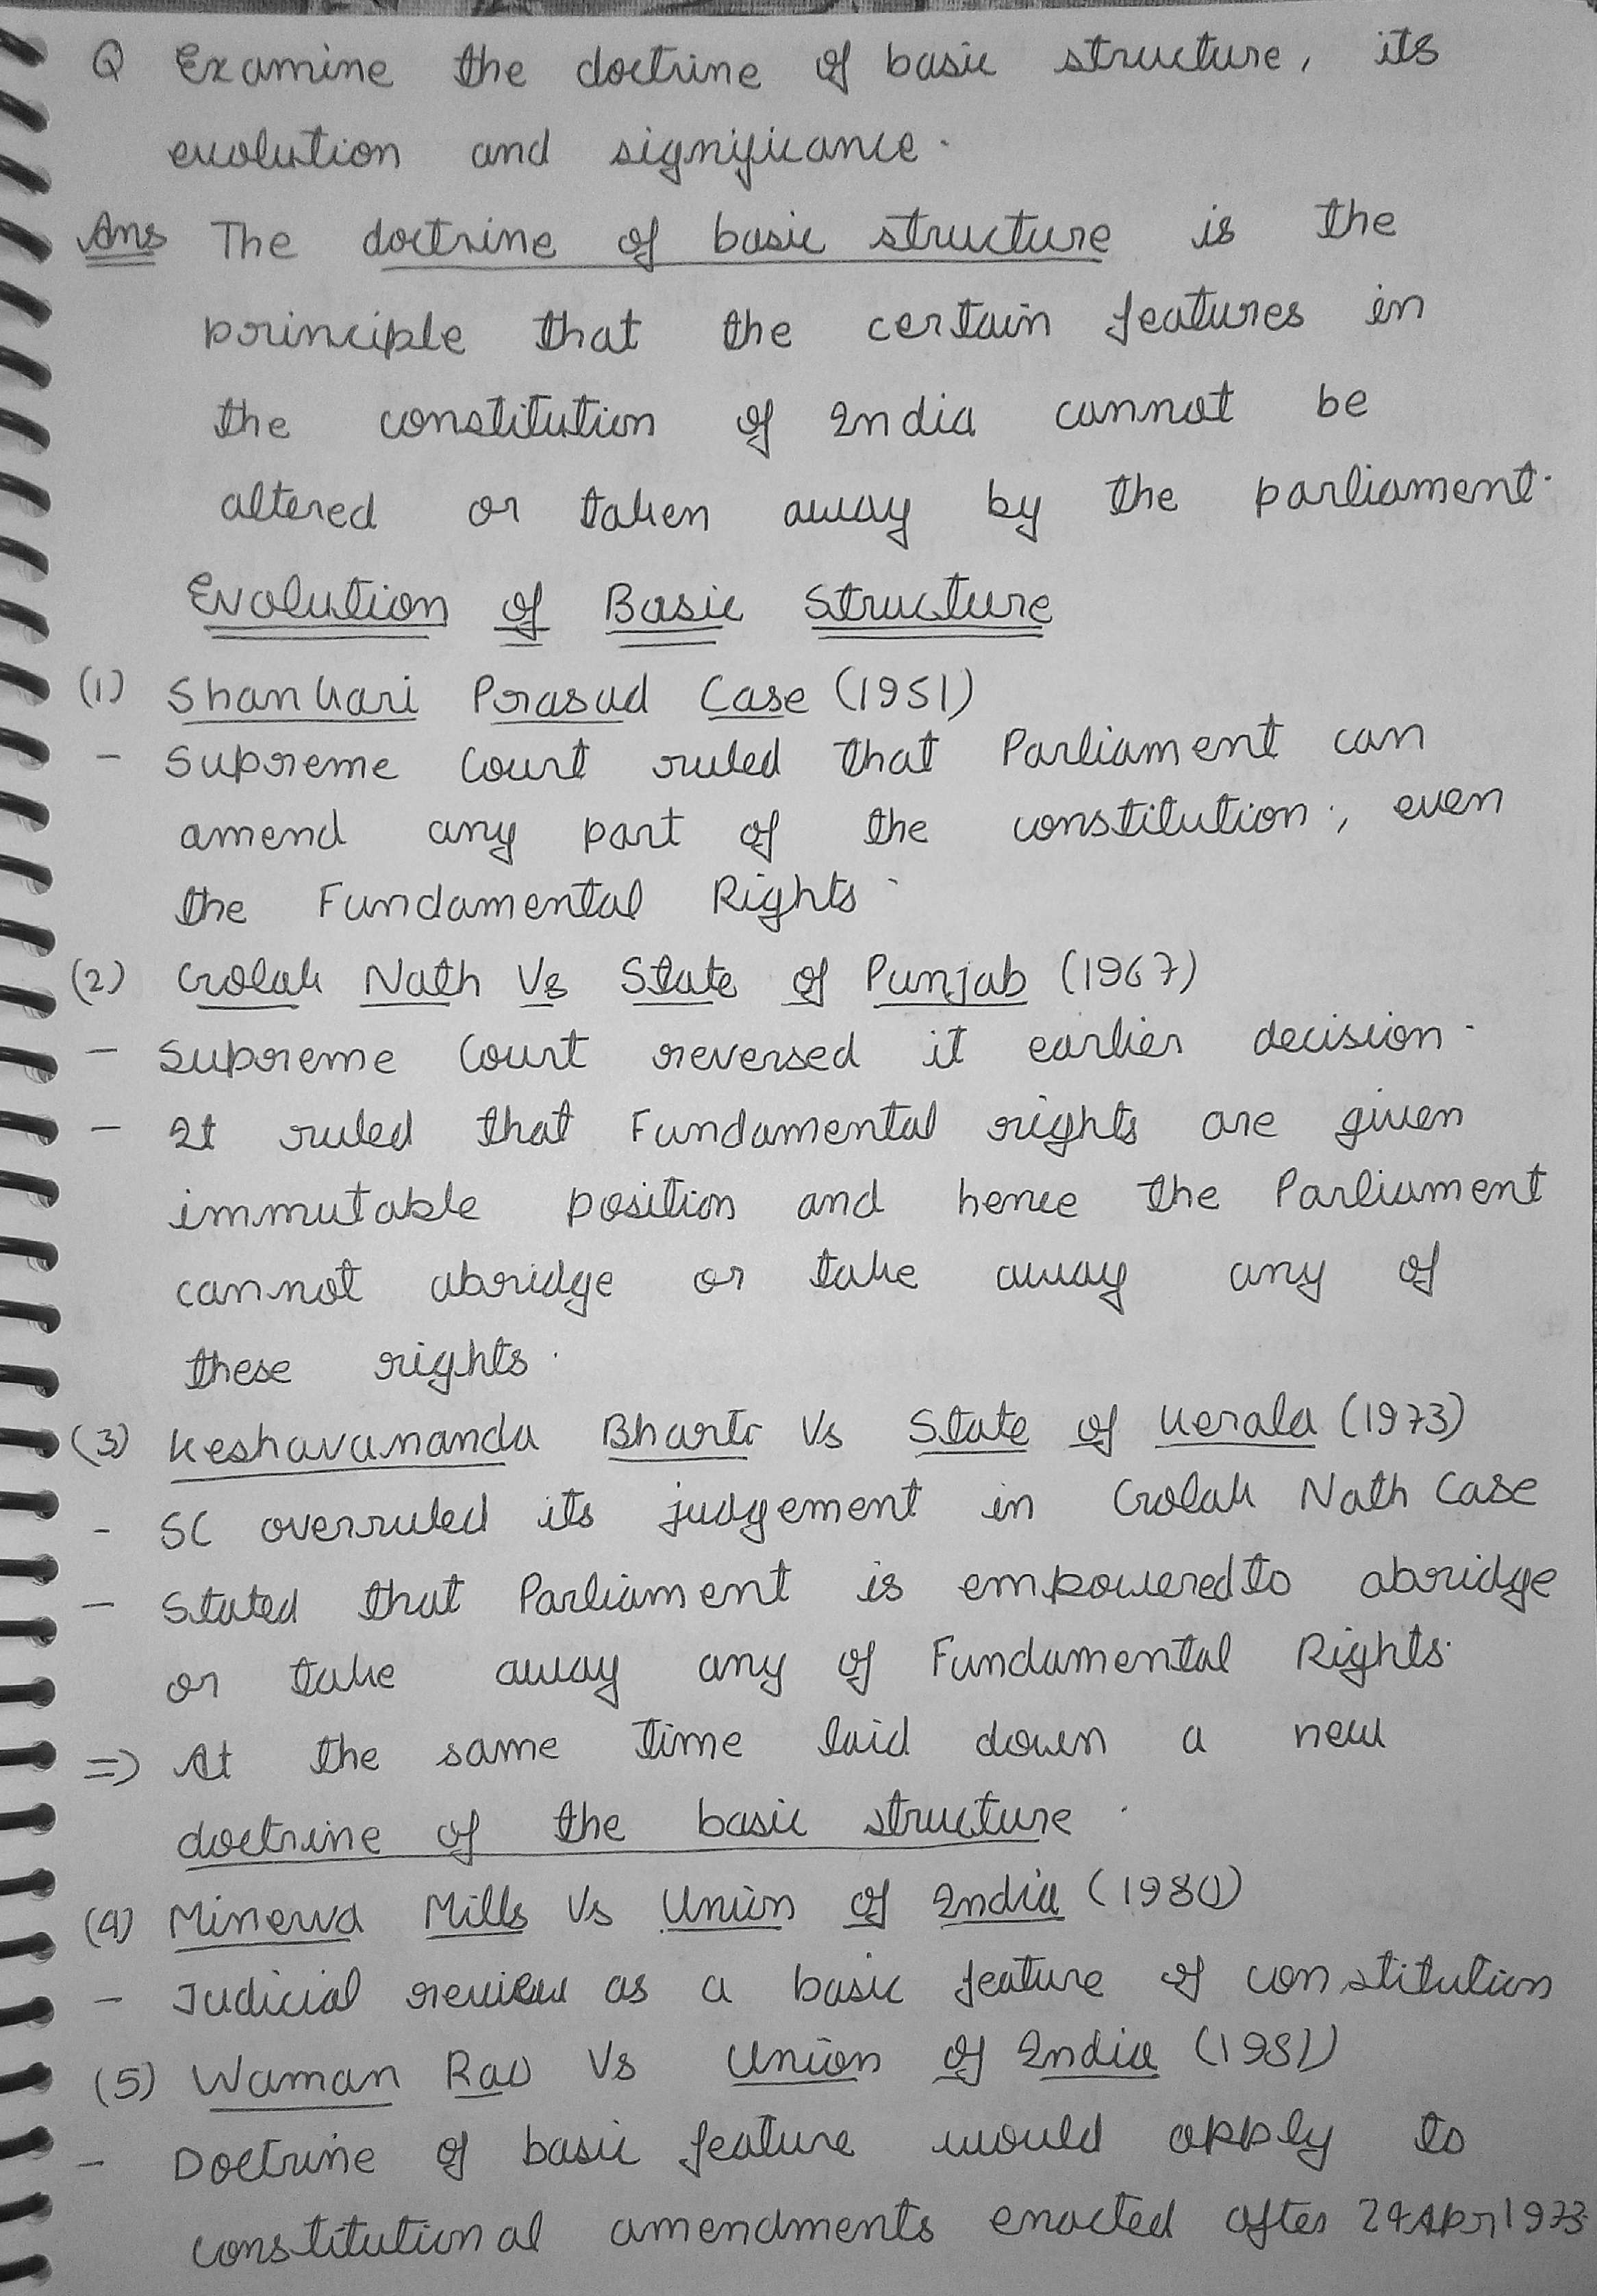 Q Examine the doctrine of basic structure, its
evolution and significance.
Ans The doctrine of basic structure is the
principle that the certain features in
the constitution of India cannot be
altered or taken away by the parliament.
Evolution of Basic Structure
(1) Shankari Prasad Case (1951)
- Supreme Court ruled that Parliament can
amend any part of the constitution, even
the Fundamental Rights.
(2) Golak Nath Vs State of Punjab (1967)
- Supreme Court reversed it earlier decision.
- It ruled that Fundamental rights are given
immutable position and hence the Parliament
cannot abridge or take away any of
these rights.
(3) Keshavananda Bharti Vs State of Kerala (1973)
- SC overruled its judgement in Golak Nath Case
- Stated that Parliament is empowered to abridge
or take away any of Fundamental Rights.
=> At the same time laid down a new
doctrine of the basic structure.
(4) Minerva Mills Vs Union of India (1980)
- Judicial review as a basic feature of constitution
(5) Waman Rao Vs Union of India (1981)
- Doctrine of basic feature would apply to
constitutional amendments enacted after 24 Apr 1973.